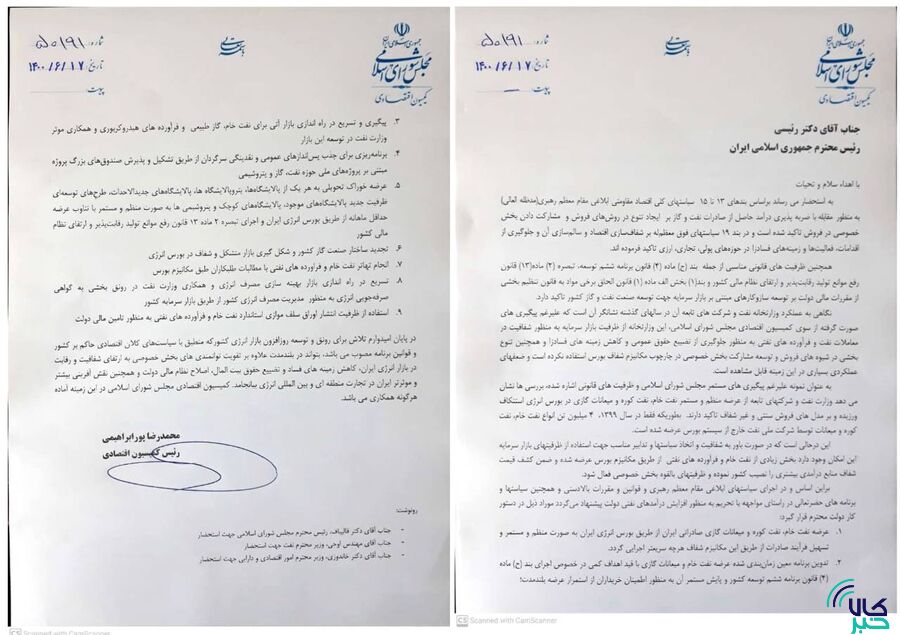 جمهوری اسلامی ایران
مجلس شورای اسلامی
کمیسیون اقتصادی
شماره: ۵۰۱۹۱
تاریخ: ۱۴۰۰/۶/۱۷
پیوست:
جناب آقای دکتر رئیسی
رئیس محترم جمهوری اسلامی ایران
با اهداء سلام و تحیات
به استحضار می رساند براساس بندهای ۱۳ تا ۱۵ سیاستهای کلی اقتصاد مقاومتی ابلاغی مقام معظم رهبری (مدظله العالی)
به منظور مقابله با ضربه پذیری درآمد حاصل از صادرات نفت و گاز بر ایجاد تنوع در روش‌های فروش و مشارکت دادن بخش
خصوصی در فروش تاکید شده است و در بند ۱۹ سیاستهای فوق معظم‌له بر شفاف‌سازی اقتصاد و سالم‌سازی آن و جلوگیری از
اقدامات، فعالیت‌ها و زمینه‌های فسادزا در حوزه‌های پولی، تجاری، ارزی تاکید فرموده اند.
همچنین ظرفیت های قانونی مناسبی از جمله بند (ج) ماده (۴) قانون برنامه ششم توسعه، تبصره (۲) ماده(۱۳) قانون
رفع موانع تولید رقابت‌پذیر و ارتقای نظام مالی کشور و بند(۱) بخش الف ماده (۱) قانون الحاق برخی مواد به قانون تنظیم بخشی
از مقررات مالی دولت بر توسعه سازوکارهای مبتنی بر بازار سرمایه جهت توسعه صنعت نفت و گاز کشور تاکید دارد.
نگاهی به عملکرد وزارتخانه نفت و شرکت های تابعه آن در سالهای گذشته نشانگر آن است که علیرغم پیگیری های
صورت گرفته از سوی کمیسیون اقتصادی مجلس شورای اسلامی، این وزارتخانه از ظرفیت بازار سرمایه به منظور شفافیت در
معاملات نفت و فرآورده های نفتی به منظور جلوگیری از تضییع حقوق عمومی و کاهش زمینه های فسادزا و همچنین تنوع
بخشی در شیوه های فروش و توسعه مشارکت بخش خصوصی در چارچوب مکانیزم شفاف بورس استفاده نکرده است و ضعفهای
عملکردی بسیاری در این زمینه قابل مشاهده است.
به عنوان نمونه علیرغم پیگیری های مستمر مجلس شورای اسلامی و ظرفیت های قانونی اشاره شده، بررسی ها نشان
می دهد وزارت نفت و شرکتهای تابعه از عرضه منظم و مستمر نفت خام، نفت کوره و میعانات گازی در بورس انرژی استنکاف
ورزیده و بر مدل های فروش سنتی و غیر شفاف تاکید دارند. بطوریکه فقط در سال ۱۳۹۹، ۴ میلیون تن انواع نفت خام، نفت
کوره و میعانات توسط شرکت ملی نفت خارج از سیستم بورس عرضه شده است.
این درحالی است که در صورت باور به شفافیت و اتخاذ سیاستها و تدابیر مناسب جهت استفاده از ظرفیتهای بازار سرمایه
این امکان وجود دارد بخش زیادی از نفت خام و فرآورده های نفتی از طریق مکانیزم بورس عرضه شده و ضمن کشف قیمت
شفاف منابع درآمدی بیشتری را نصیب کشور نموده و ظرفیتهای بالقوه بخش خصوصی فعال شود.
براین اساس و در اجرای سیاستهای ابلاغی مقام معظم رهبری و قوانین و مقررات بالادستی و همچنین سیاستها و
برنامه های حضرتعالی در راستای مواجهه با تحریم به منظور افزایش درآمدهای نفتی دولت پیشنهاد می‌گردد موراد ذیل در دستور
کار دولت محترم قرار گیرد:
۱. عرضه نفت خام، نفت کوره و میعانات گازی صادراتی ایران از طریق بورس انرژی ایران به صورت منظم و مستمر و
تسهیل فرآیند صادرات از طریق این مکانیزم شفاف هرچه سریعتر اجرایی گردد.
۲. تدوین برنامه معین زمان‌بندی شده عرضه نفت خام و میعانات گازی با قید اهداف کمی در خصوص اجرای بند (ج) ماده
(۴) قانون برنامه ششم توسعه کشور و پایش مستمر آن به منظور اطمینان خریداران از استمرار عرضه بلندمدت؛
CS Scanned with CamScanner
کالا خبر
جمهوری اسلامی ایران
مجلس شورای اسلامی
کمیسیون اقتصادی
شماره: ۵۰۱۹۱
تاریخ: ۱۴۰۰/۶/۱۷
پیوست:
۳. پیگیری و تسریع در راه اندازی بازار آتی برای نفت خام، گاز طبیعی و فرآورده های هیدروکربوری و همکاری موثر
وزارت نفت در توسعه این بازار
۴. برنامه‌ریزی برای جذب پس‌اندازهای عمومی و نقدینگی سرگردان از طریق تشکیل و پذیرش صندوق‌های بزرگ پروژه
مبتنی بر پروژه‌های ملی حوزه نفت، گاز و پتروشیمی
۵. عرضه خوراک تحویلی به هر یک از پالایشگاه‌ها، پتروپالایشگاه ها، پالایشگاه‌های جدیدالاحداث، طرح‌های توسعه‌ای
ظرفیت جدید پالایشگاه‌های موجود، پالایشگاه‌های کوچک و پتروشیمی ها به صورت منظم و مستمر با تناوب عرضه
حداقل ماهانه از طریق بورس انرژی ایران و اجرای تبصره ۲ ماده ۱۳ قانون رفع موانع تولید رقابت‌پذیر و ارتقای نظام
مالی کشور
۶. تجدید ساختار صنعت گاز کشور و شکل گیری بازار متشکل و شفاف در بورس انرژی
۷. انجام تهاتر نفت خام و فرآورده های نفتی با مطالبات طلبکاران طبق مکانیزم بورس
۸. تسریع در راه اندازی بازار بهینه سازی مصرف انرژی و همکاری وزارت نفت در رونق بخشی به گواهی
صرفه‌جویی انرژی به منظور مدیریت مصرف انرژی کشور از طریق بازار سرمایه کشور
۹. استفاده از ظرفیت انتشار اوراق سلف موازی استاندارد نفت خام و فرآورده های نفتی به منظور تامین مالی دولت
در پایان امیدوارم تلاش برای رونق و توسعه روزافزون بازار انرژی کشورکه منطبق با سیاست‌های کلان اقتصادی حاکم بر کشور
و قوانین برنامه مصوب می باشد، بتواند در بلندمدت علاوه بر تقویت توانمندی های بخش خصوصی به ارتقای شفافیت و رقابت
در بازار انرژی ایران، کاهش زمینه های فساد و تضییع حقوق بیت المال، اصلاح نظام مالی دولت و همچنین نقش آفرینی بیشتر
و موثرتر ایران در تجارت منطقه ای و بین المللی انرژی بیانجامد. کمیسیون اقتصادی مجلس شورای اسلامی در این زمینه آماده
هرگونه همکاری می باشد.
محمدرضا پورابراهیمی
رئیس کمیسیون اقتصادی
رونوشت:
- جناب آقای دکتر قالیباف، رئیس محترم مجلس شورای اسلامی جهت استحضار
- جناب آقای مهندس اوجی، وزیر محترم نفت جهت استحضار
- جناب آقای دکتر خاندوزی، وزیر محترم امور اقتصادی و دارایی جهت استحضار
CS Scanned with CamScanner